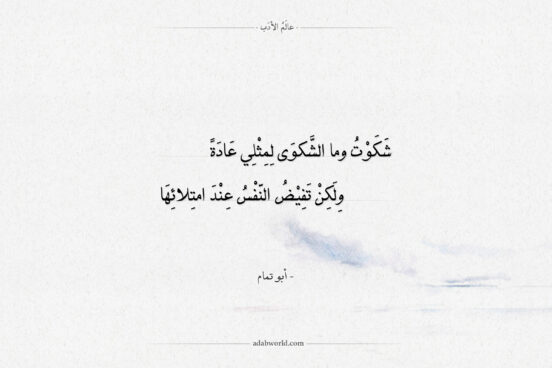 عالَمُ الأدَب
شَكَوْتُ وما الشَّكوَى لِمِثْلِي عَادَةً
ولَكِنْ تَفِيْضُ النّفْسُ عِنْدَ امتِلائِهَا
- أبو تمام
adabworld.com